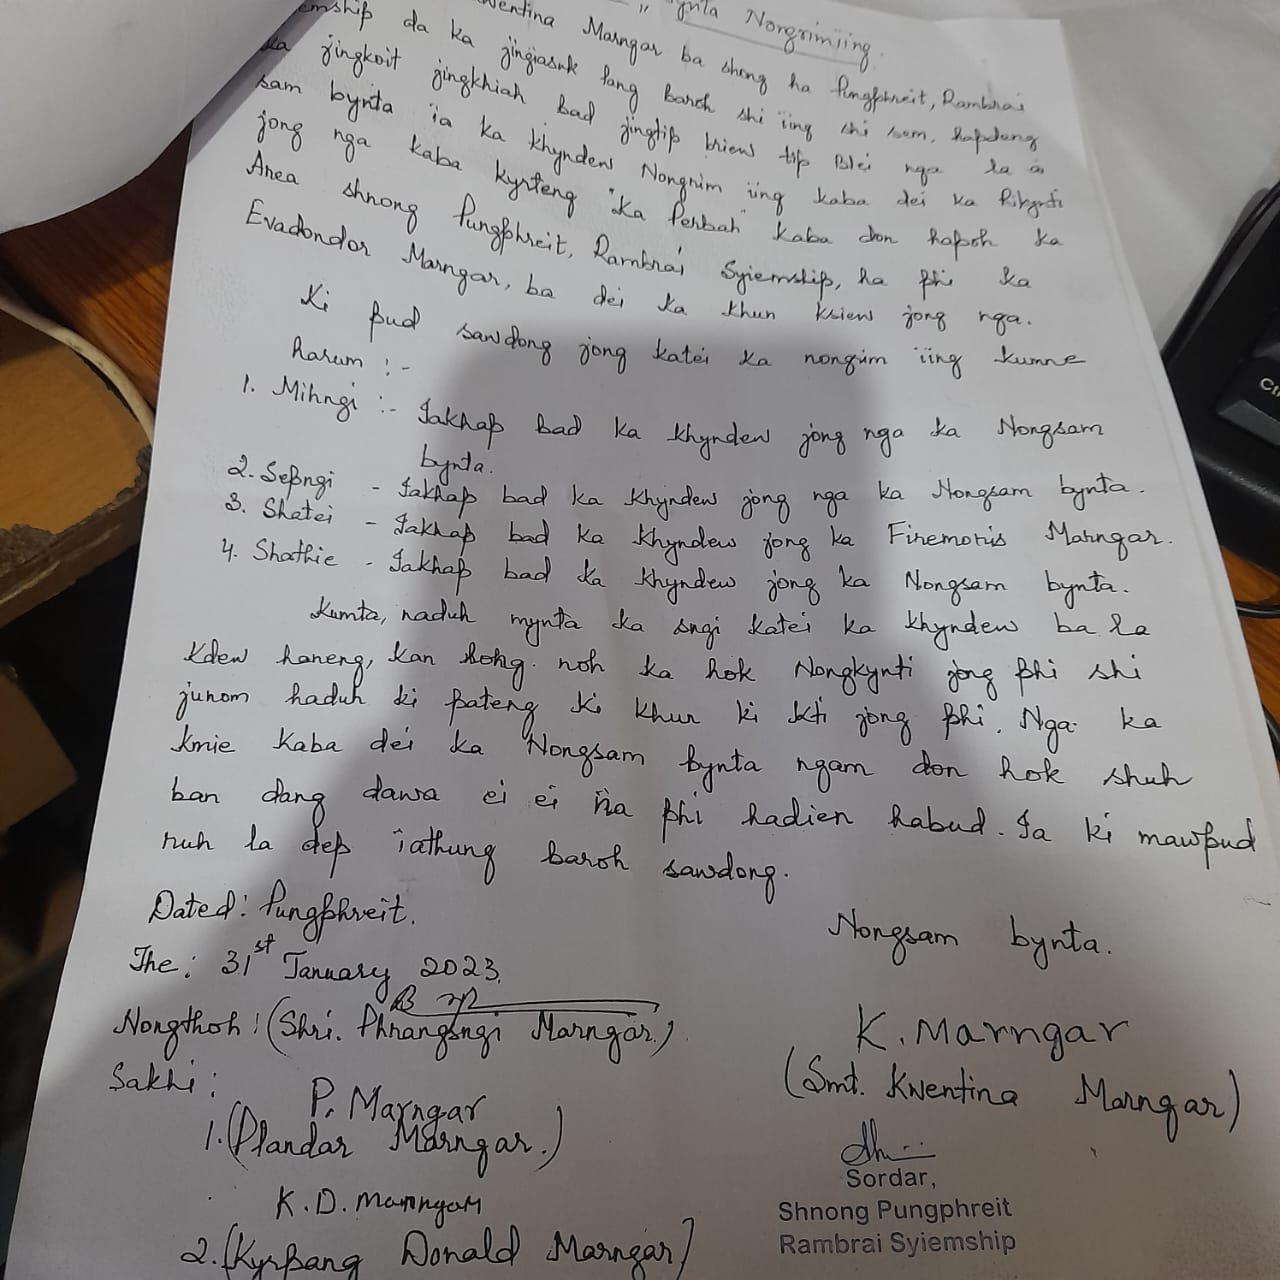 " ynta Nongrimiing.
wentina Marngar ba shong ha Pungphreit, Rambrai
emship da ka jingiasuk lang baroh shi iing shi sem, hapdeng
ka jingkoit jingkhiah bad jingtip briew tip Blei nga la ai
sam bynta ia ka khyndew Nongrim iing kaba dei ka Rikynti
jong nga kaba kyrteng "Ka Perbah" kaba don hapoh ka
Area shnong Pungphreit, Rambrai Syiemship, ha phi ka
Evadondor Marngar, ba dei ka khun ksiew jong nga.
Ki pud sawdong jong katei ka nongrim iing kumne
harum :-
1. Mihngi :- Iakhap bad ka khyndew jong nga ka Nongsam
bynta.
2. Sepngi - Iakhap bad ka khyndew jong nga ka Nongsam bynta.
3. Shatei - Iakhap bad ka khyndew jong ka Firemoris Marngar.
4. Shathie - Iakhap bad ka khyndew jong ka Nongsam bynta.
Kumta, naduh mynta ka sngi katei ka khyndew ba la
kdew haneng, kan long noh ka hok Nongkynti jong phi shi
junom haduh ki pateng ki khun ki kti jong phi. Nga ka
kmie kaba dei ka Nongsam bynta ngam don hok shuh
ban dang dawa ei ei ïa phi hadien habud. Ia ki mawpud
ruh la dep ïathung baroh sawdong.
Dated: Pungphreit.
The: 31st January 2023.
Nongsam bynta.
Nongthoh: (Shri. Phrangsngi Marngar)
K. Marngar
(Smt. Kwentina Marngar)
Sakhi:
P. Marngar
1. (Plandar Marngar.)
K. D. Marngar
2. (Kyrpang Donald Marngar)
Sordar,
Shnong Pungphreit
Rambrai Syiemship
Ct